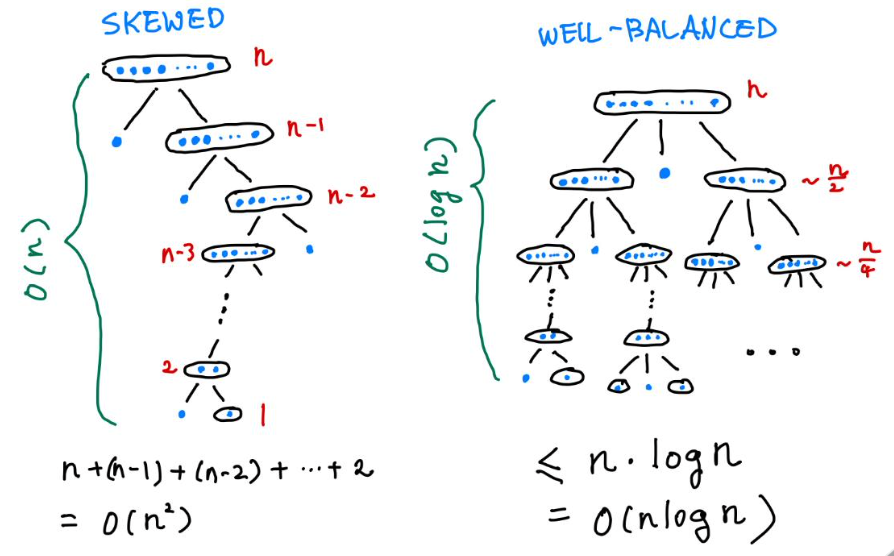 SKEWED
n
n-1
n-2
n-3
2
1
O(n)
n+(n-1)+(n-2)+ ··· + 2
= O(n²)
WELL-BALANCED
n
~ n/2
~ n/4
O(log n)
...
≤ n · log n
= O(n log n)